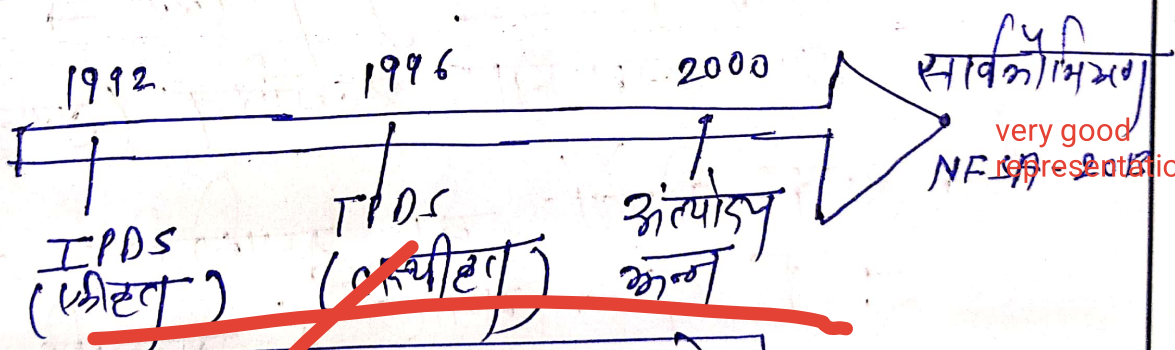 1992
1996
2000
सार्वभौमिकरण
very good
representatio
NFSA - 2013
IPDS
(एकीकृत)
TPDS
(लक्ष्यीकृत)
अंत्योदय
अन्न